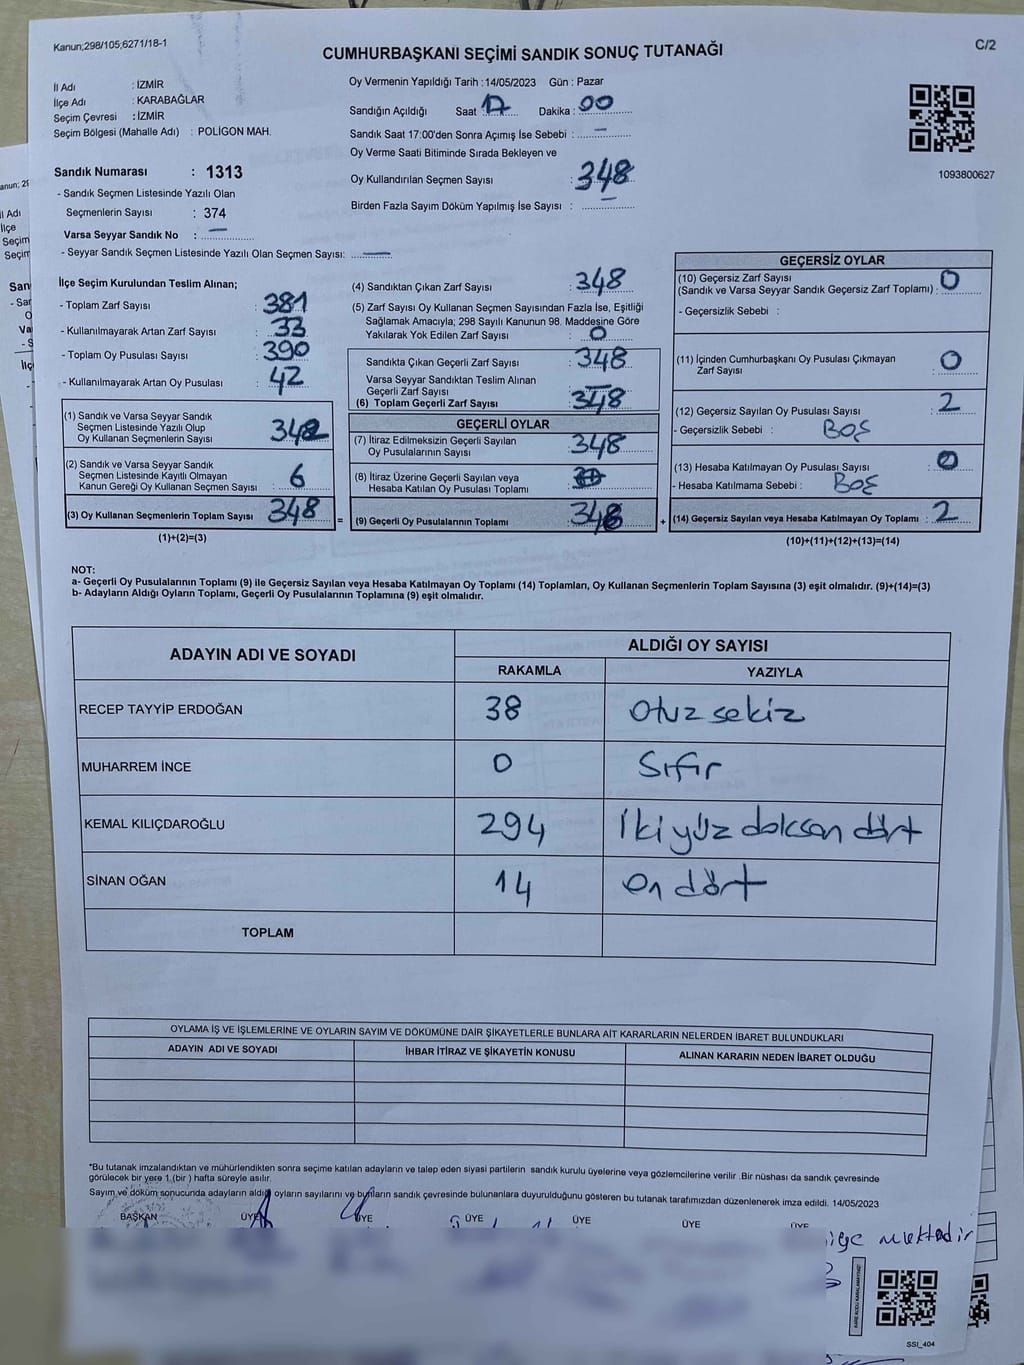 Kanun;298/105;6271/18-1
C/2
CUMHURBAŞKANI SEÇİMİ SANDIK SONUÇ TUTANAĞI
İl Adı : İZMİR
İlçe Adı : KARABAĞLAR
Seçim Çevresi : İZMİR
Seçim Bölgesi (Mahalle Adı) : POLİGON MAH.
Oy Vermenin Yapıldığı Tarih : 14/05/2023 Gün : Pazar
Sandığın Açıldığı Saat : 17 Dakika : 00
Sandık Saat 17:00'den Sonra Açımış İse Sebebi : —
Oy Verme Saati Bitiminde Sırada Bekleyen ve
Oy Kullandırılan Seçmen Sayısı : 348
Birden Fazla Sayım Döküm Yapılmış İse Sayısı : —
1093800627
Sandık Numarası : 1313
- Sandık Seçmen Listesinde Yazılı Olan
Seçmenlerin Sayısı : 374
Varsa Seyyar Sandık No : —
- Seyyar Sandık Seçmen Listesinde Yazılı Olan Seçmen Sayısı: —
İlçe Seçim Kurulundan Teslim Alınan;
- Toplam Zarf Sayısı : 381
- Kullanılmayarak Artan Zarf Sayısı : 33
- Toplam Oy Pusulası Sayısı : 390
- Kullanılmayarak Artan Oy Pusulası : 42
(1) Sandık ve Varsa Seyyar Sandık
Seçmen Listesinde Yazılı Olup
Oy Kullanan Seçmenlerin Sayısı : 342
(2) Sandık ve Varsa Seyyar Sandık
Seçmen Listesinde Kayıtlı Olmayan
Kanun Gereği Oy Kullanan Seçmen Sayısı : 6
(3) Oy Kullanan Seçmenlerin Toplam Sayısı : 348
(1)+(2)=(3)
=
(4) Sandıktan Çıkan Zarf Sayısı : 348
(5) Zarf Sayısı Oy Kullanan Seçmen Sayısından Fazla İse, Eşitliği
Sağlamak Amacıyla; 298 Sayılı Kanunun 98. Maddesine Göre
Yakılarak Yok Edilen Zarf Sayısı : 0
Sandıkta Çıkan Geçerli Zarf Sayısı : 348
Varsa Seyyar Sandıktan Teslim Alınan
Geçerli Zarf Sayısı
(6) Toplam Geçerli Zarf Sayısı : 348
GEÇERLİ OYLAR
(7) İtiraz Edilmeksizin Geçerli Sayılan
Oy Pusulalarının Sayısı : 348
(8) İtiraz Üzerine Geçerli Sayılan veya
Hesaba Katılan Oy Pusulası Toplamı :
(9) Geçerli Oy Pusulalarının Toplamı : 346
+
GEÇERSİZ OYLAR
(10) Geçersiz Zarf Sayısı
(Sandık ve Varsa Seyyar Sandık Geçersiz Zarf Toplamı) : 0
- Geçersizlik Sebebi :
(11) İçinden Cumhurbaşkanı Oy Pusulası Çıkmayan
Zarf Sayısı : 0
(12) Geçersiz Sayılan Oy Pusulası Sayısı : 2
- Geçersizlik Sebebi : BOŞ
(13) Hesaba Katılmayan Oy Pusulası Sayısı : 0
- Hesaba Katılmama Sebebi : BOŞ
(14) Geçersiz Sayılan veya Hesaba Katılmayan Oy Toplamı : 2
(10)+(11)+(12)+(13)=(14)
NOT:
a- Geçerli Oy Pusulalarının Toplamı (9) ile Geçersiz Sayılan veya Hesaba Katılmayan Oy Toplamı (14) Toplamları, Oy Kullanan Seçmenlerin Toplam Sayısına (3) eşit olmalıdır. (9)+(14)=(3)
b- Adayların Aldığı Oyların Toplamı, Geçerli Oy Pusulalarının Toplamına (9) eşit olmalıdır.
ADAYIN ADI VE SOYADI
ALDIĞI OY SAYISI
RAKAMLA YAZIYLA
RECEP TAYYİP ERDOĞAN 38 Otuz sekiz
MUHARREM İNCE 0 Sıfır
KEMAL KILIÇDAROĞLU 294 İki yüz doksan dört
SİNAN OĞAN 14 On dört
TOPLAM
OYLAMA İŞ VE İŞLEMLERİNE VE OYLARIN SAYIM VE DÖKÜMÜNE DAİR ŞİKAYETLERLE BUNLARA AİT KARARLARIN NELERDEN İBARET BULUNDUKLARI
ADAYIN ADI VE SOYADI İHBAR İTİRAZ VE ŞİKAYETİN KONUSU ALINAN KARARIN NEDEN İBARET OLDUĞU
*Bu tutanak imzalandıktan ve mühürlendikten sonra seçime katılan adayların ve talep eden siyasi partilerin sandık kurulu üyelerine veya gözlemcilerine verilir .Bir nüshası da sandık çevresinde
görülecek bir yere 1 (bir ) hafta süreyle asılır.
Sayım ve döküm sonucunda adayların aldığı oyların sayılarını ve bunların sandık çevresinde bulunanlara duyurulduğunu gösteren bu tutanak tarafımızdan düzenlenerek imza edildi. 14/05/2023
BAŞKAN ÜYE ÜYE ÜYE ÜYE ÜYE ÜYE
SSI_404